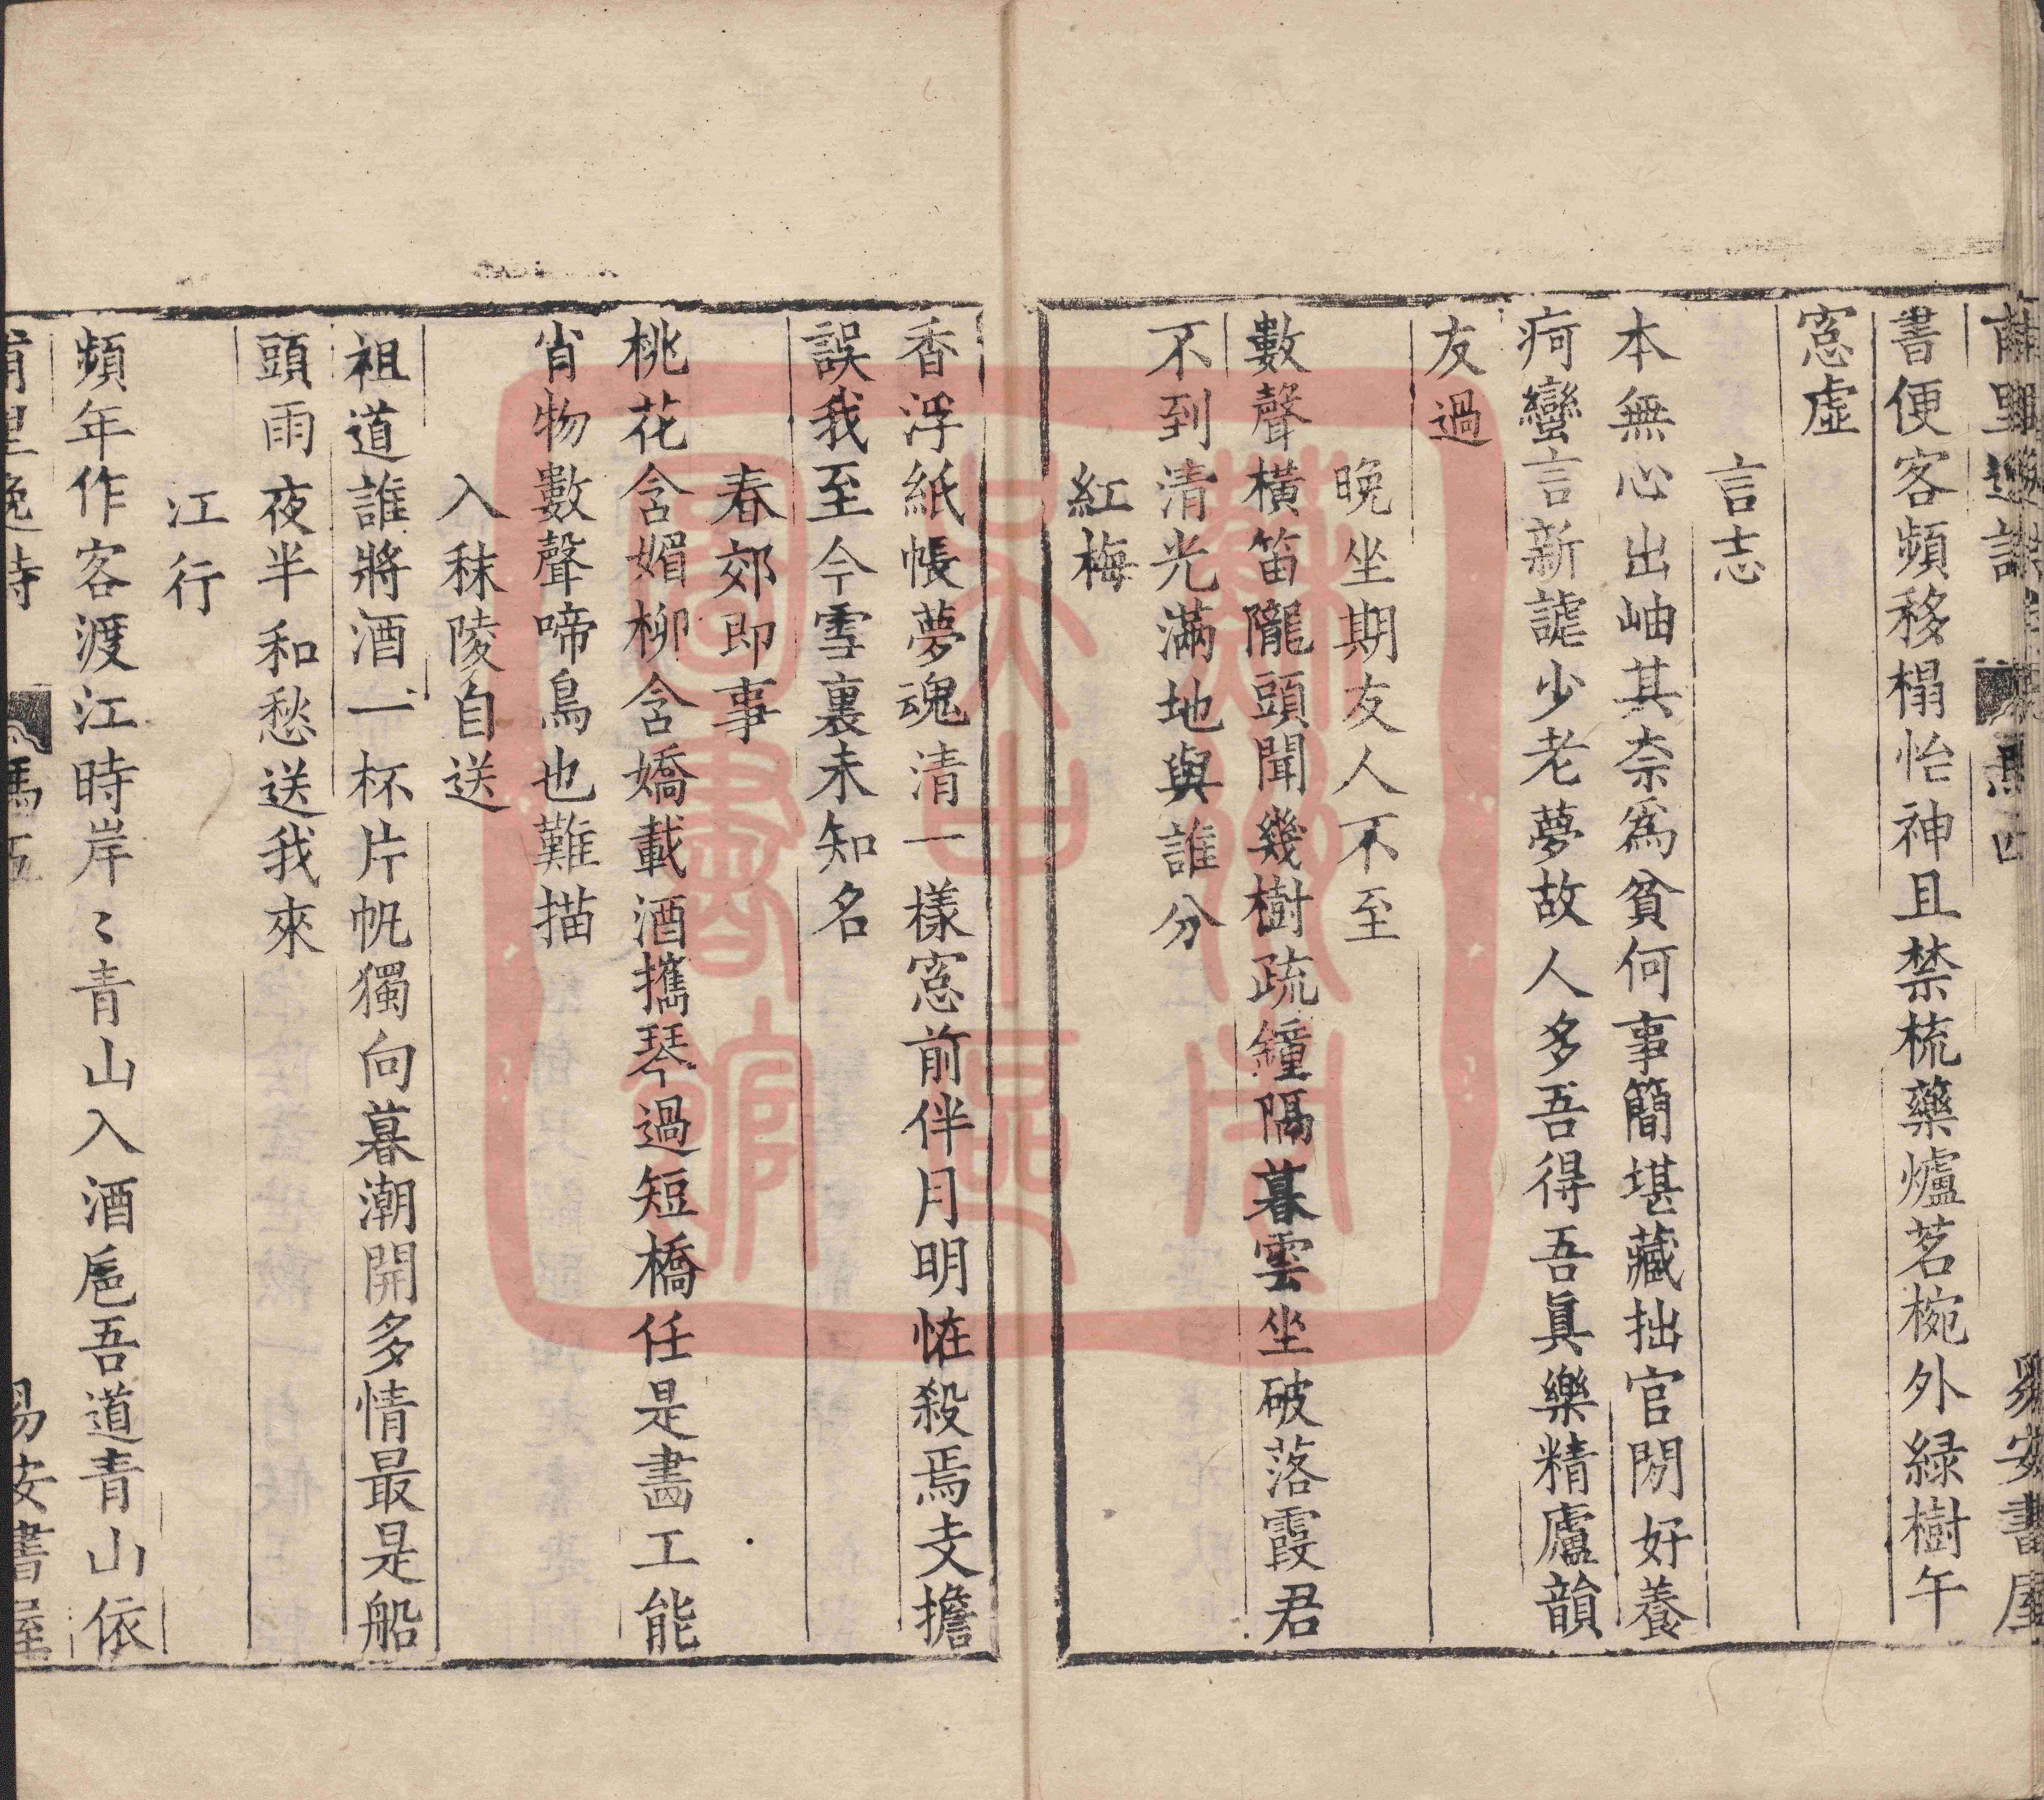 書便客頻移榻怡神且禁梳藥爐茗椀外緑樹午
窓虛
言志
本無心出岫其奈爲貧何事簡堪藏拙官閒好養
疴蠻言新謔少老夢故人多吾得吾眞樂精廬韻
友過
晚坐期友人不至
數聲橫笛隴頭聞幾樹疏鐘隔暮雲坐破落霞君
不到清光滿地與誰分
紅梅
香浮紙帳夢魂清一樣窓前伴月明恠殺焉支擔
誤我至今雪裏未知名
春郊即事
桃花含媚柳含嬌載酒攜琴過短橋任是畵工能
肖物數聲啼鳥也難描
入秣陵自送
祖道誰將酒一杯片帆獨向暮潮開多情最是船
頭雨夜半和愁送我來
江行
頻年作客渡江時岸〻青山入酒巵吾道青山依
易安書屋